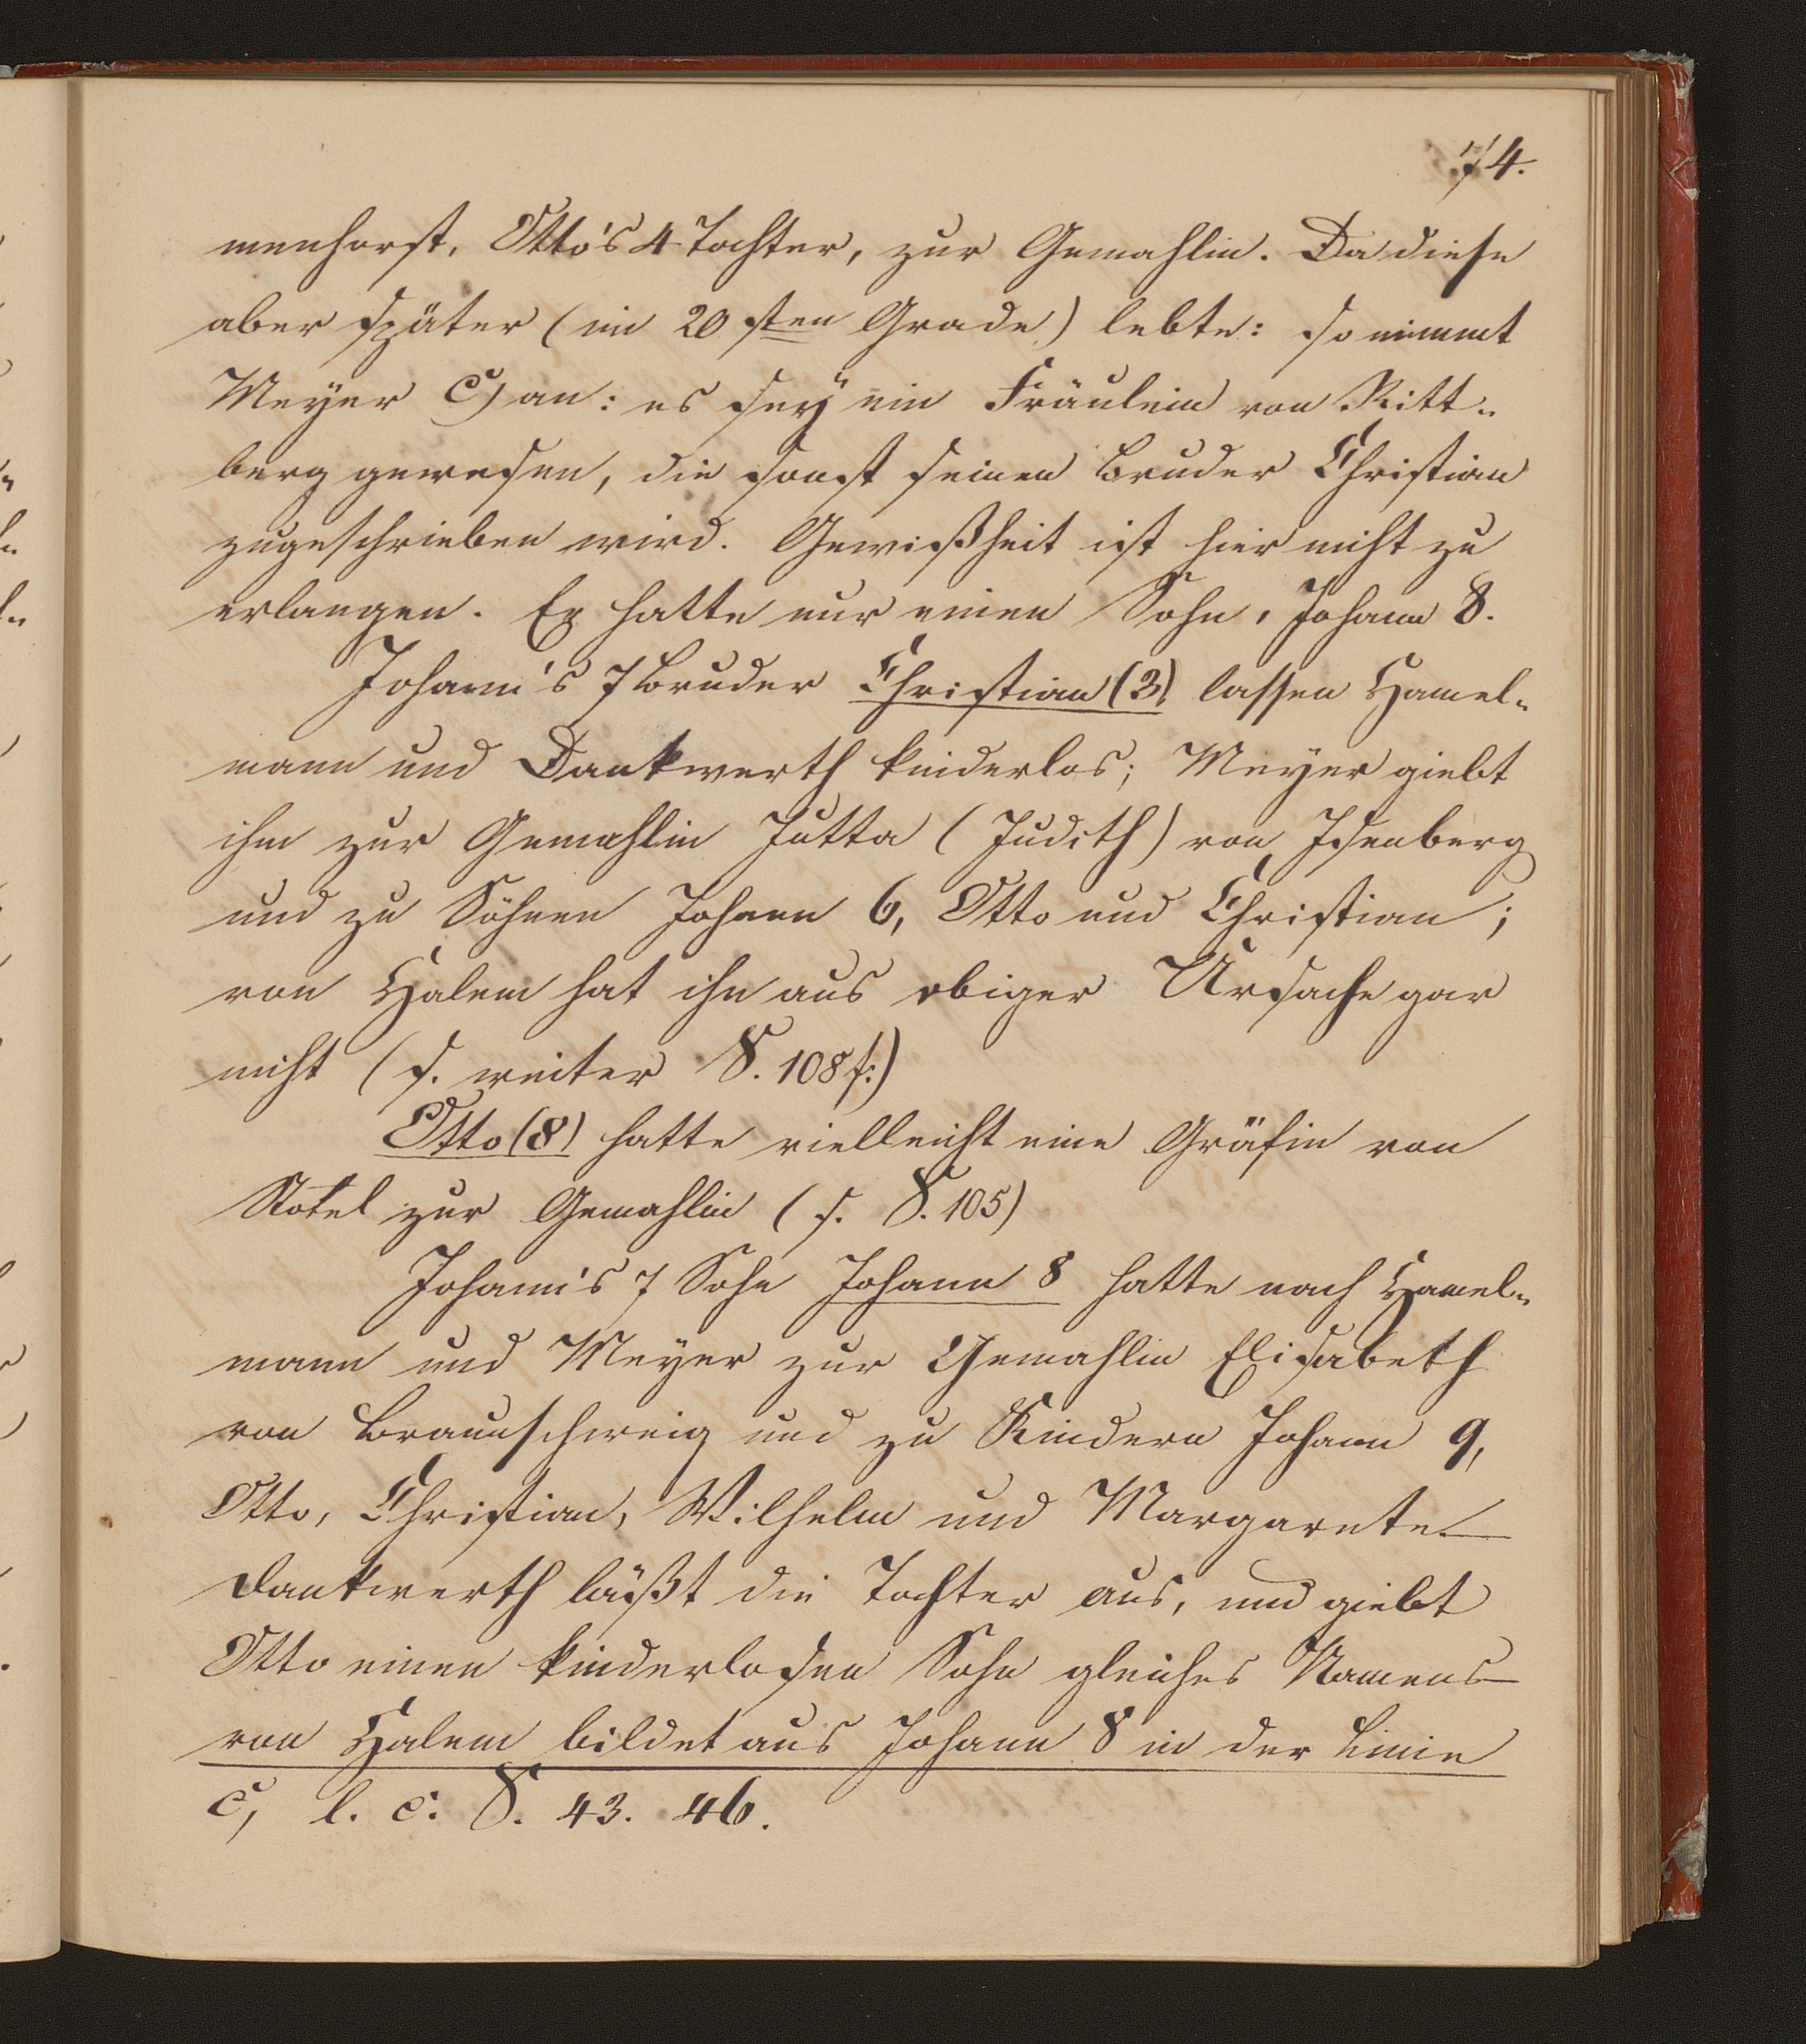 74.
menhorst, Otto's 4 Tochter, zur Gemahlin. Da diese
aber später (im 20sten Grade) lebte: so nimmt
Meyer c) an: es sey ein Fräulein von Ritt-
berg gewesen, die sonst seinem Bruder Christian
zugeschrieben wird. Gewißheit ist hier nicht zu
erlangen. Er hatte nur einen Sohn, Johann 8.
Johann's 7 Bruder Christian (3) lassen Hamel-
mann und Dankwerth kinderlos; Meyer giebt
ihm zur Gemahlin Jutta (Judith) von Isenberg
und zu Söhnen Johann 6, Otto und Christian;
von Halem hat ihn aus obiger Ursache gar
nicht (s. weiter S. 108 f.)
Otto (8) hatte vielleicht eine Gräfin von
Stotel zur Gemahlin (s. S. 105)
Johann's 7 Sohn Johann 8 hatte nach Hamel-
mann und Meyer zur Gemahlin Elisabeth
von Braunschweig und zu Kindern Johann 9,
Otto, Christian, Wilhelm und Margarete.
Dankwerth läßt die Tochter aus, und giebt
Otto einen kinderlosen Sohn gleiches Namens
von Halem bildet aus Johann 8 in der Linie
c, l. c. S. 43. 46.